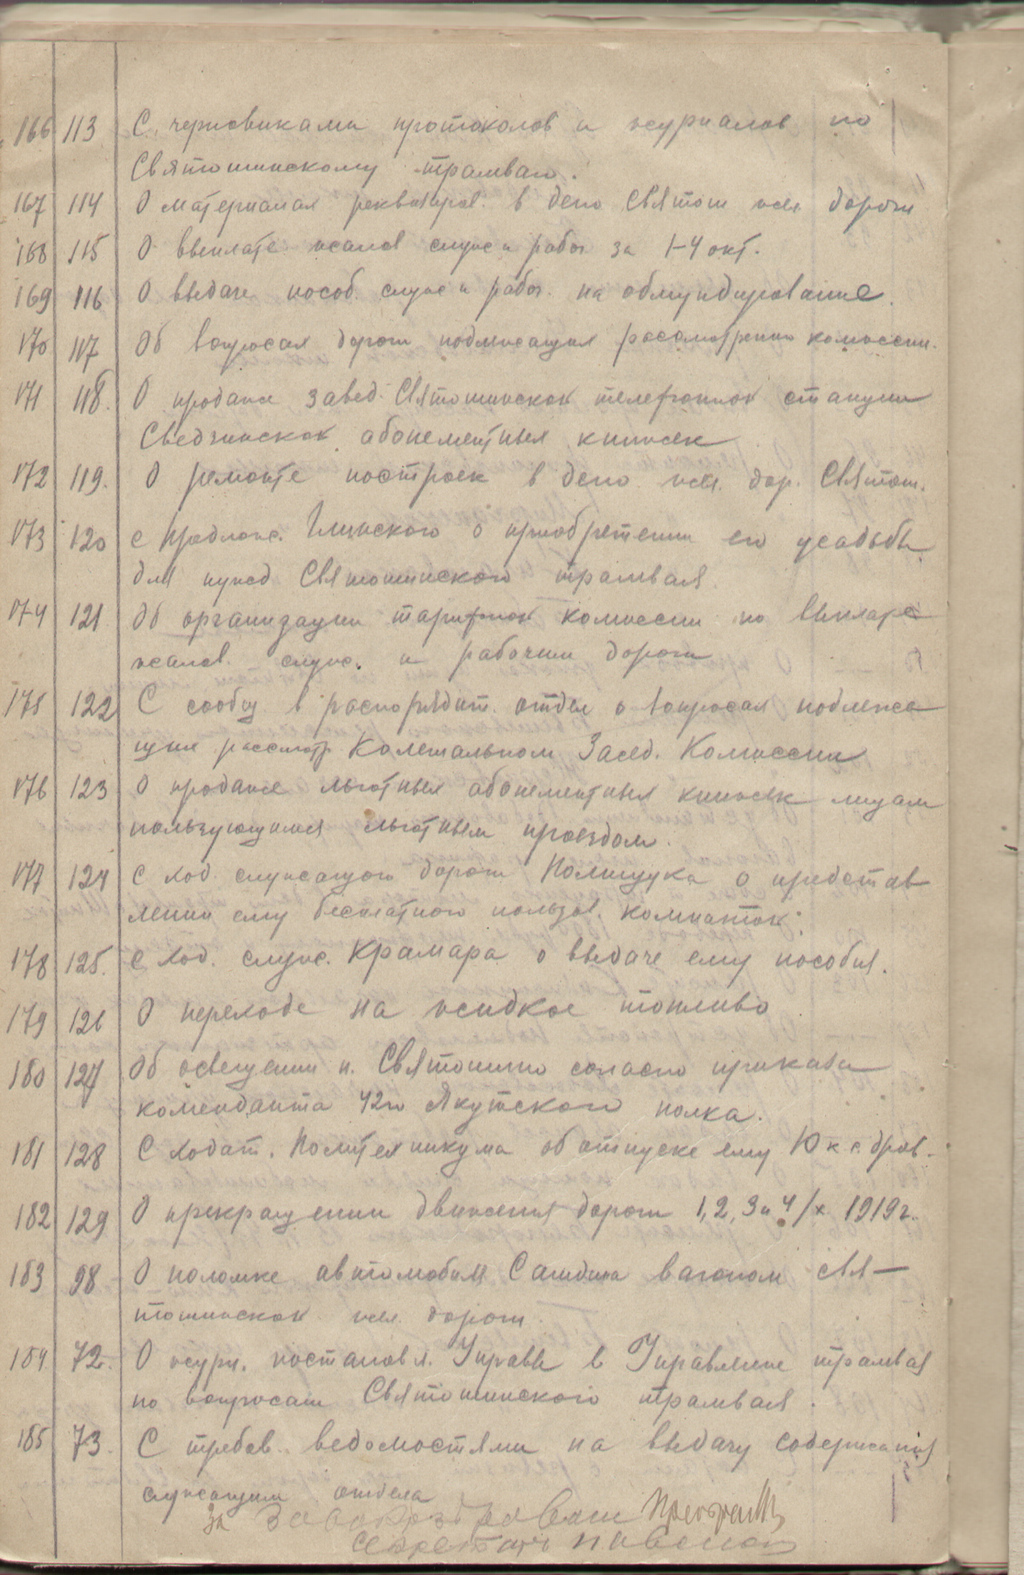 166 113 С черновиками протоколов и журналов по
Святошинскому трамваю.
167 114 О материалах реквизиров. в депо Святош жел дороги
168 115 О выплате жалов служ и рабоч за 1-4 окт.
169 116 О выдаче пособ. служ и рабоч. на обмундирование.
170 117 Об вопросах дороги подлежащих рассмотрению комиссии.
171 118. О продаже завед. Святошинской телефонной станции
абонементных книжек
172 119. О ремонте построек в депо жел. дор. Святош.
173 120 с предлож. Глинского о приобретении его усадьбы
для нужд Святошинского трамвая.
174 121 Об организации тарифной комиссии по выплате
жалов. служ. и рабочим дороги
175 122 С сообщ в распорядит. отдел о вопросах подлежа
щих рассмотр Колегиальном Засед. Комиссии
176 123 О продаже льготных абонементных книжек лицам
пользующимся льготным проездом.
177 124 с ход. служащего дороги Полищука о представ
лении ему бесплатного пользов. комнатой.
178 125. с ход. служ. Крамара о выдаче ему пособия.
179 126 О переходе на жидкое топливо
180 127 Об освещении п. Святошино согласно приказа
коменданта 42го Якутского полка.
181 128 С ходат. Политехникума об отпуске ему 10 к с дров.
182 129 О прекращении движения дороги 1, 2, 3 и 4/х 1919 г.
183 98 О поломке автомобиля вагоном Свя-
тошинской жел. дороги.
184 72. О журн. постановл. Управы в Управление трамвая
по вопросам Святошинского трамвая.
185 73. С требов. ведомостями на выдачу содержания
служащим отдела
За
Секретарь